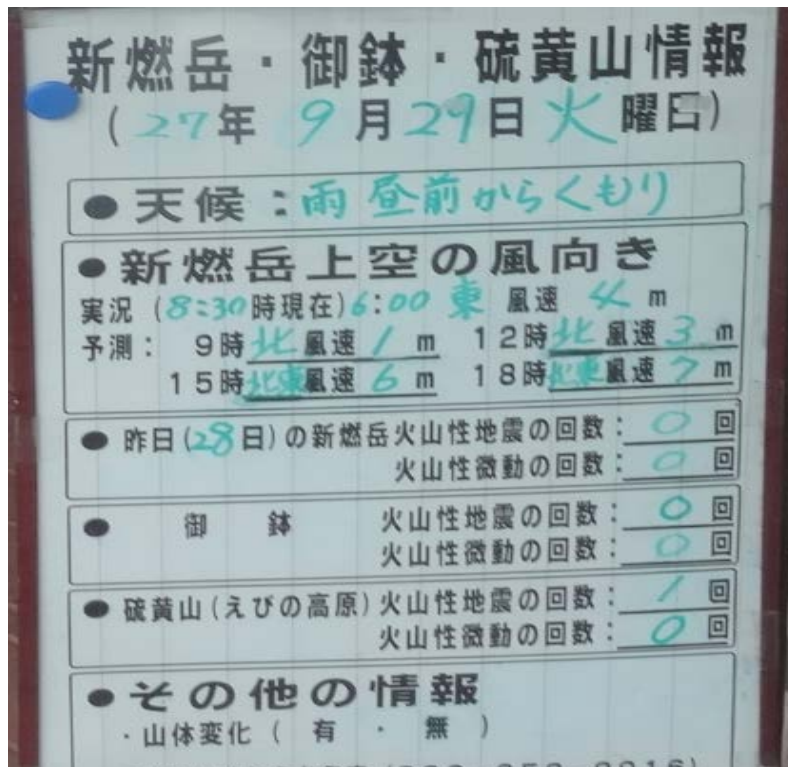 新燃岳・御鉢・硫黄山情報
(27年 9月29日 火曜日)
●天候：雨 昼前からくもり
●新燃岳上空の風向き
実況 (8:30時現在) 6:00 東 風速 4 m
予測： 9時 北 風速 1 m 12時 北 風速 3 m
15時 北東 風速 6 m 18時 北東 風速 7 m
●昨日(28日)の新燃岳火山性地震の回数：0 回
火山性微動の回数：0 回
● 御 鉢 火山性地震の回数：0 回
火山性微動の回数：0 回
●硫黄山(えびの高原)火山性地震の回数：1 回
火山性微動の回数：0 回
●その他の情報
・山体変化 ( 有 ・ 無 )